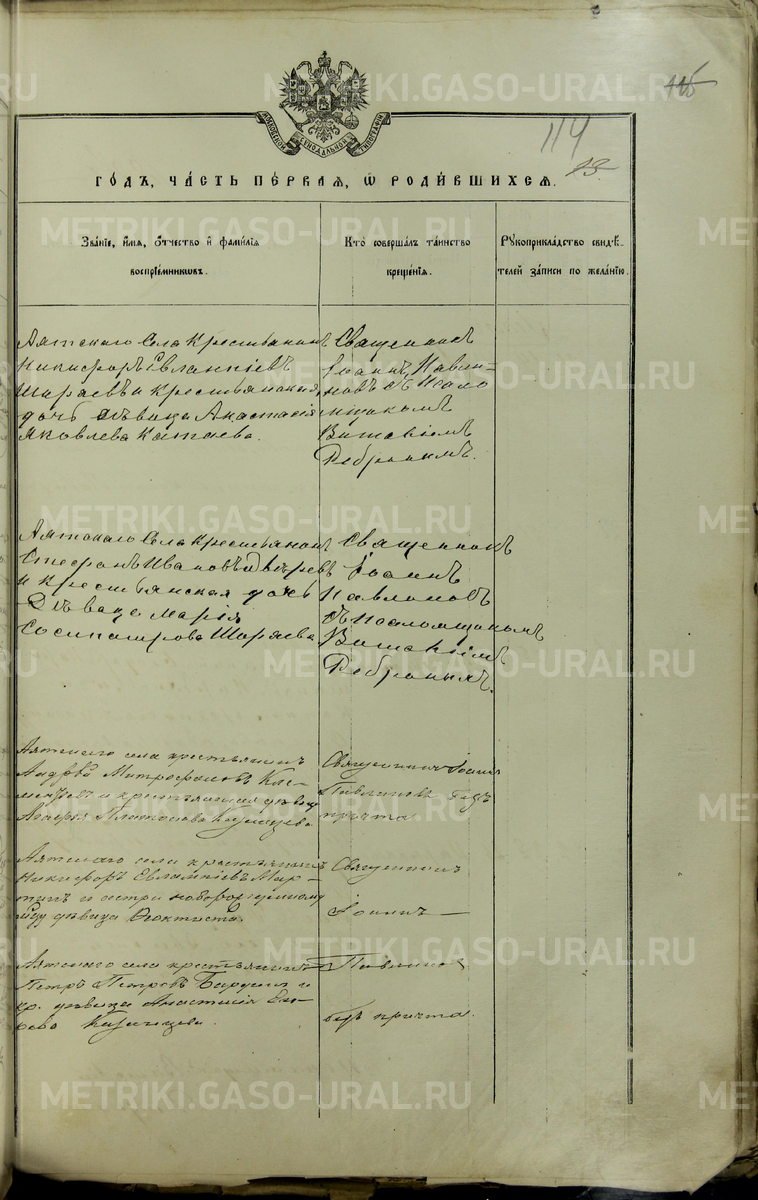 115
114
13.
МОСКОВСКОЙ СѴНОДАЛЬНОЙ ТИПОГРАФІИ
ГОДЪ, ЧАСТЬ ПЕРВАЯ, Ѡ РОДИВШИХСЯ.
Званіе, имя, отчество и фамилія
воспріемниковъ.
Кто совершалъ таинство
крещенія.
Рукоприкладство свидѣ-
телей записи по желанію.
Аятскаго Села Крестьянинъ
Никифоръ Евлампіевъ
Шараевъ и крестьянская
дочь дѣвица Анастасія
Яковлева Катаева.
Священникъ
Іоаннъ Павли-
новъ съ Псало
мщикомъ
Виталіемъ
Ребринымъ.
Аятскаго Села Крестьянинъ
Стефанъ Ивановъ
и крестьянская дочь
Дѣвица Марія
Сосипатрова Шараева
Священникъ
Іоаннъ
Павлиновъ
съ Псаломщикомъ
Виталіемъ
Ребринымъ.
Аятскаго села крестьянинъ
Митрофановъ
и крестьянская дѣвица
Платонова Казанцева
Священникъ Іоаннъ
Павлиновъ безъ
причта
Аятскаго села крестьянинъ
Никифоръ Евлампіевъ
и сестра новорожденному
дѣвица Феоктиста
Священникъ
Іоаннъ —
Аятскаго села крестьянинъ
Петръ Петровъ и
кр. дѣвица Анастасія
Казанцева.
Павлиновъ
безъ причта.
METRIKI.GASO-URAL.RU